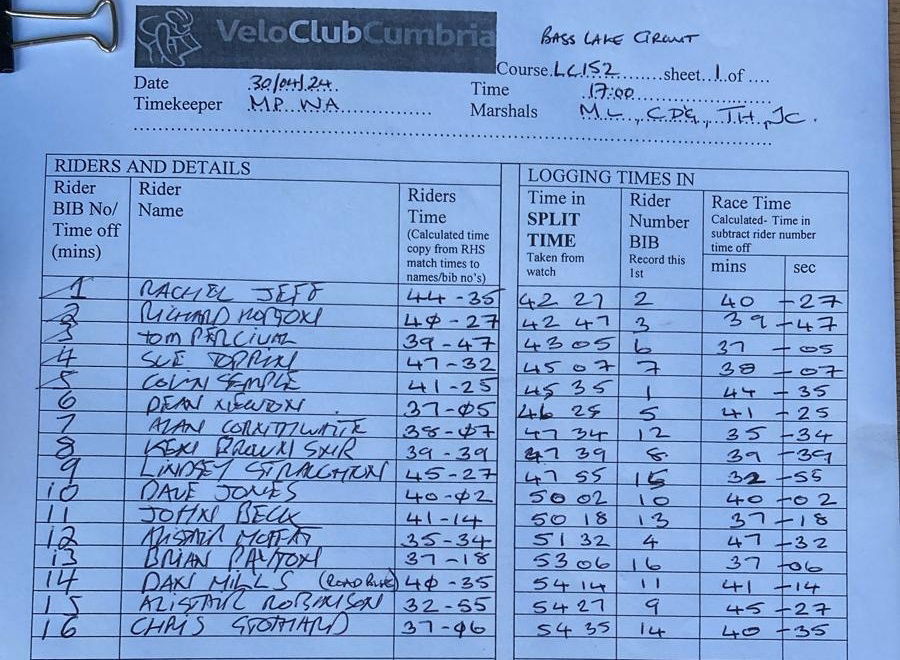 VeloClubCumbria
BASS LAKE CIRCUIT
Course LC152 sheet 1 of ....
Date 30/04/24 Time 17:00
Timekeeper M.P. WA Marshals M.L., C.DG, T.H, JC.
RIDERS AND DETAILS LOGGING TIMES IN
Rider BIB No/ Time off (mins) Rider Name Riders Time (Calculated time copy from RHS match times to names/bib no's) Time in SPLIT TIME Taken from watch Rider Number BIB Record this 1st Race Time Calculated- Time in subtract rider number time off
mins sec
1 RACHEL JEFF 44-35 42 27 2 40-27
2 RICHARD HORTON 40-27 42 47 3 39-47
3 TOM PERCIVAL 39-47 43 05 6 37-05
4 SUE 47-32 45 07 7 38-07
5 COLIN SEMPLE 41-25 45 35 1 44-35
6 DEAN NEWTON 37-05 46 25 5 41-25
7 ALAN CORNTHWAITE 38-07 47 34 12 35-34
8 KEN BROWN SNR 39-39 47 39 8 39-39
9 LINDSEY STRAUGHTON 45-27 47 55 15 32-55
10 DAVE JONES 40-02 50 02 10 40-02
11 JOHN BECK 41-14 50 18 13 37-18
12 ALISTAIR MOFFAT 35-34 51 32 4 47-32
13 BRIAN PAYTON 37-18 53 06 16 37-06
14 DAN MILLS (ROAD BIKE) 40-35 54 14 11 41-14
15 ALISTAIR ROBINSON 32-55 54 27 9 45-27
16 CHRIS STOTHARD 37-06 54 35 14 40-35